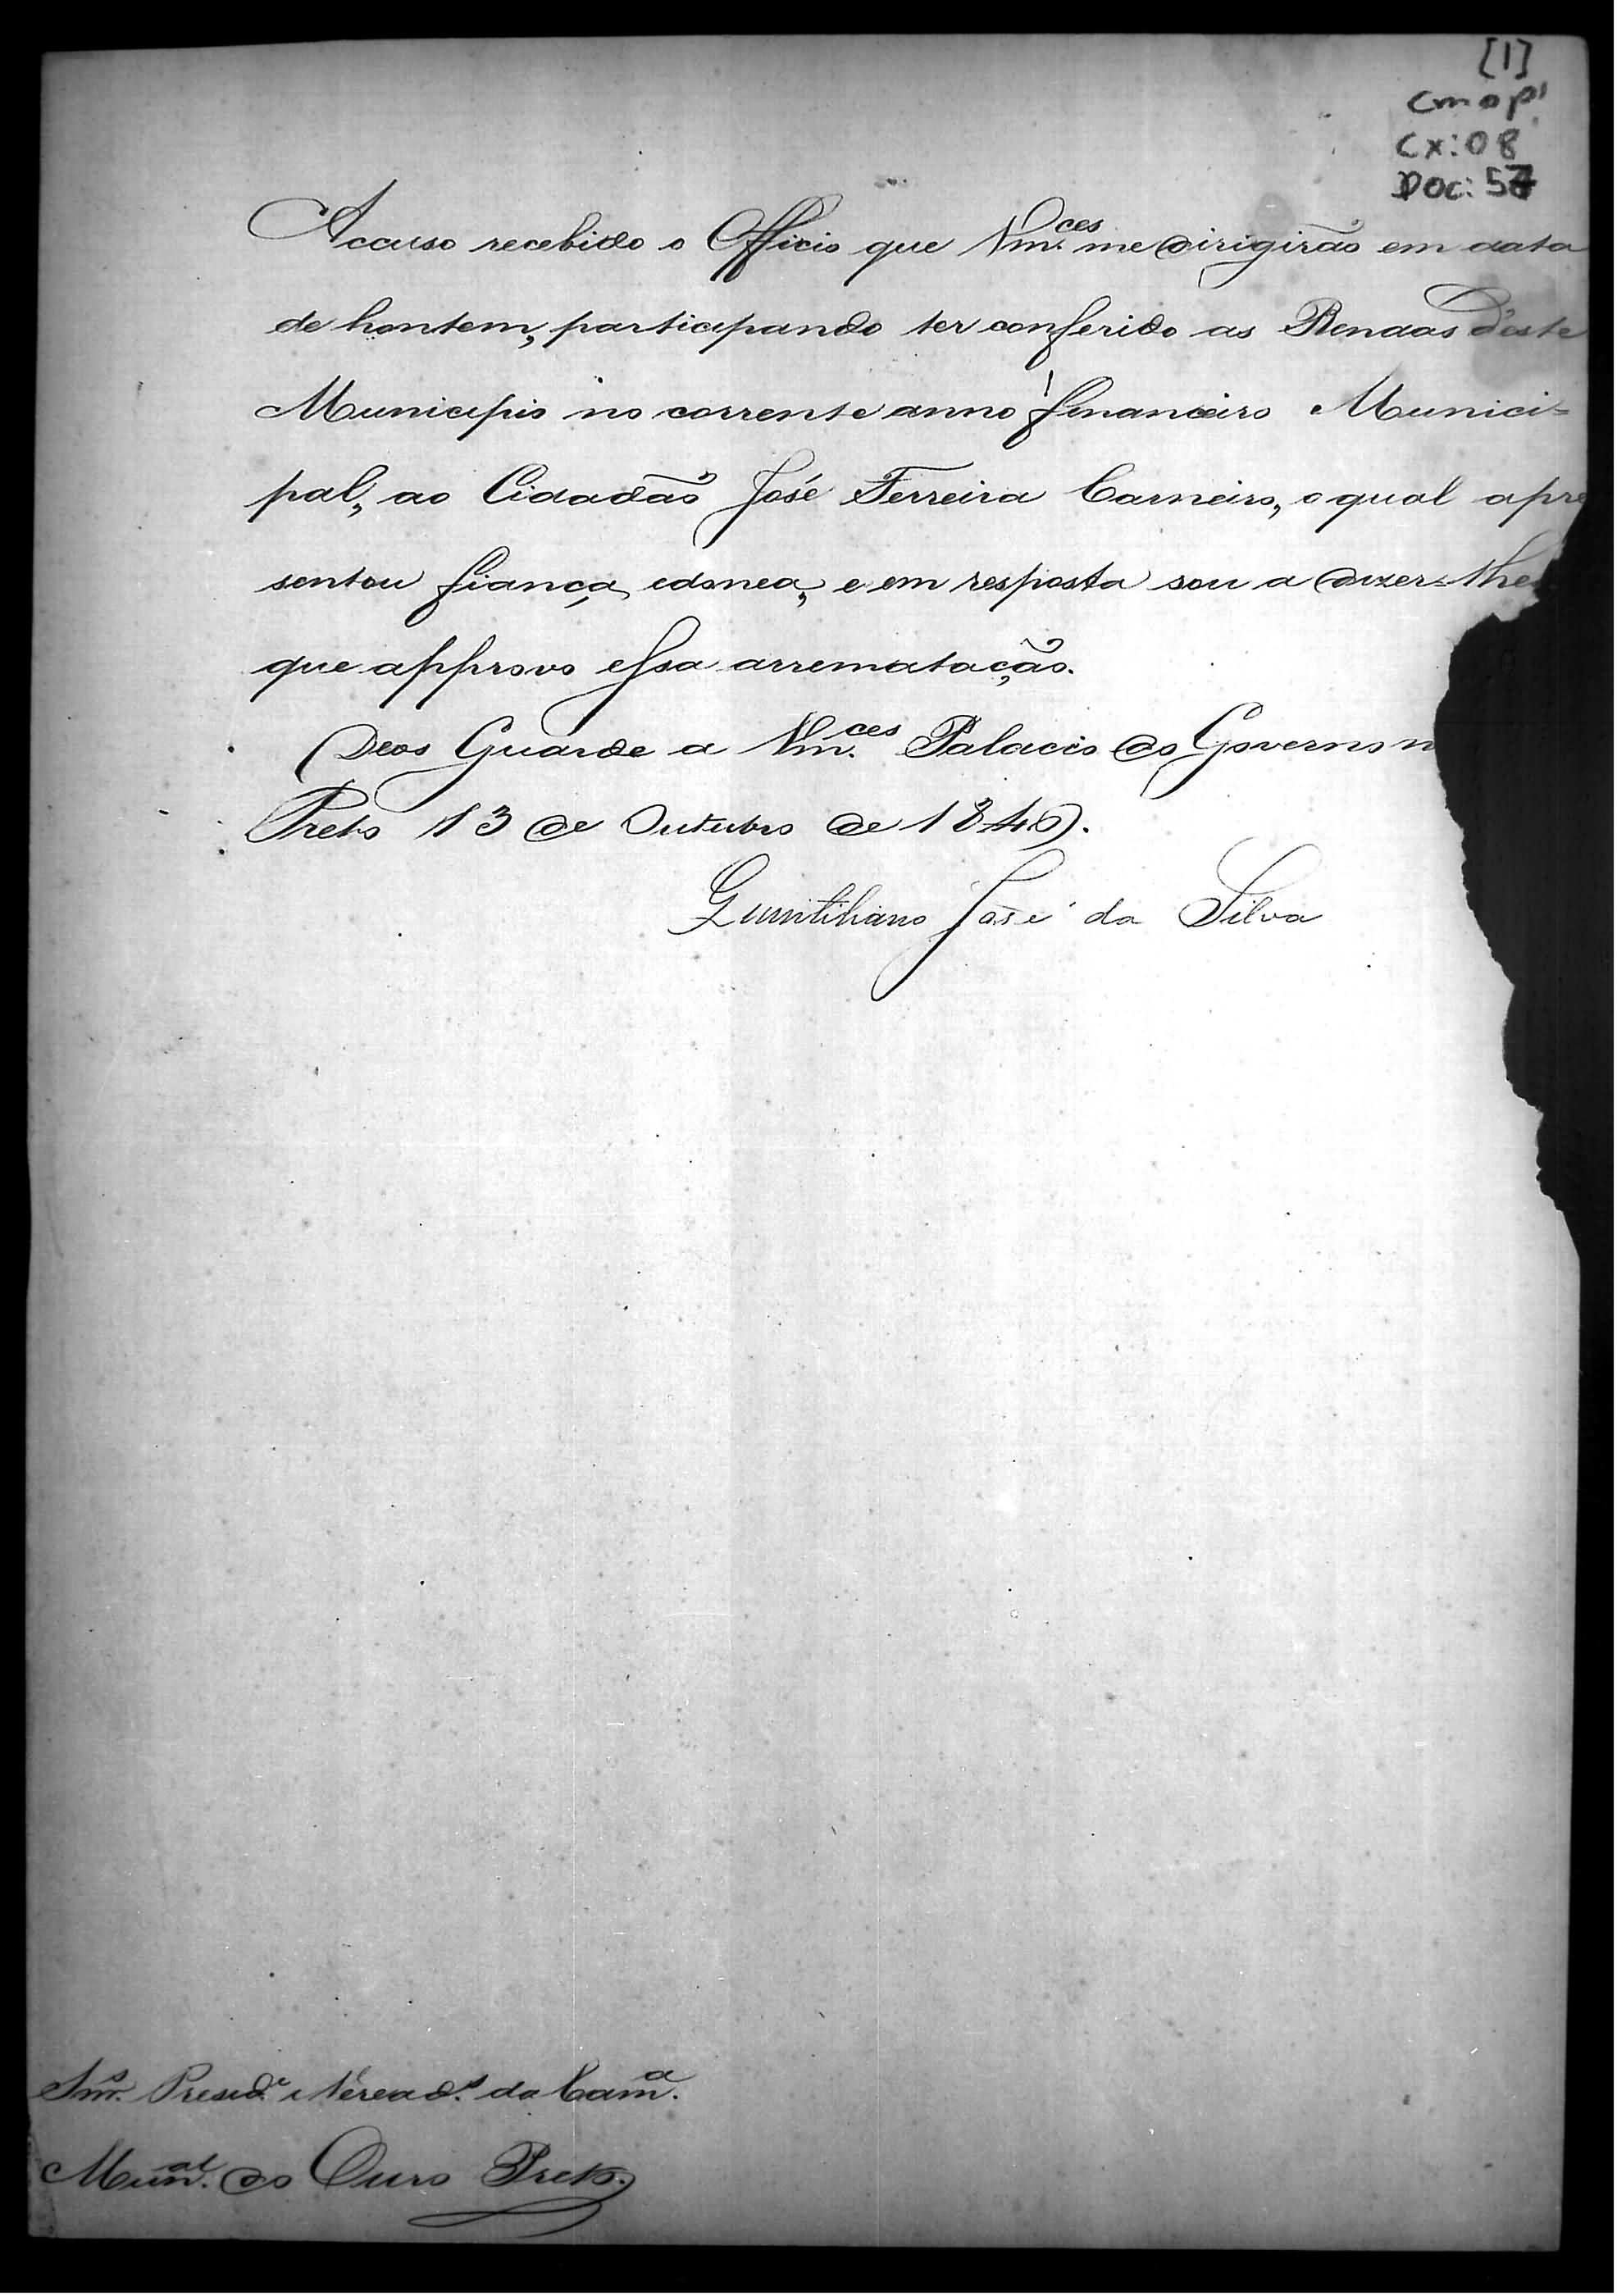 [1]
cmop
Cx: 08
Doc: 57
Accuso recebido o Officio que Vm.ces me dirigirão em data
de hontem, participando ter conferido as Rendas d'este
Municipio no corrente anno financeiro Munici=
pal, ao Cidadão José Ferreira Carneiro, o qual apre
sentou fiança idonea, e em resposta sou a dizer=lhes
que approvo essa arrematação.
Deos Guarde a Vm.ces Palacio do Governo n
Preto 13 de Outubro de 1846.
Quintiliano José da Silva
Snr.s Presid.e e Veread.s da Cam.a
Mun.al do Ouro Preto.